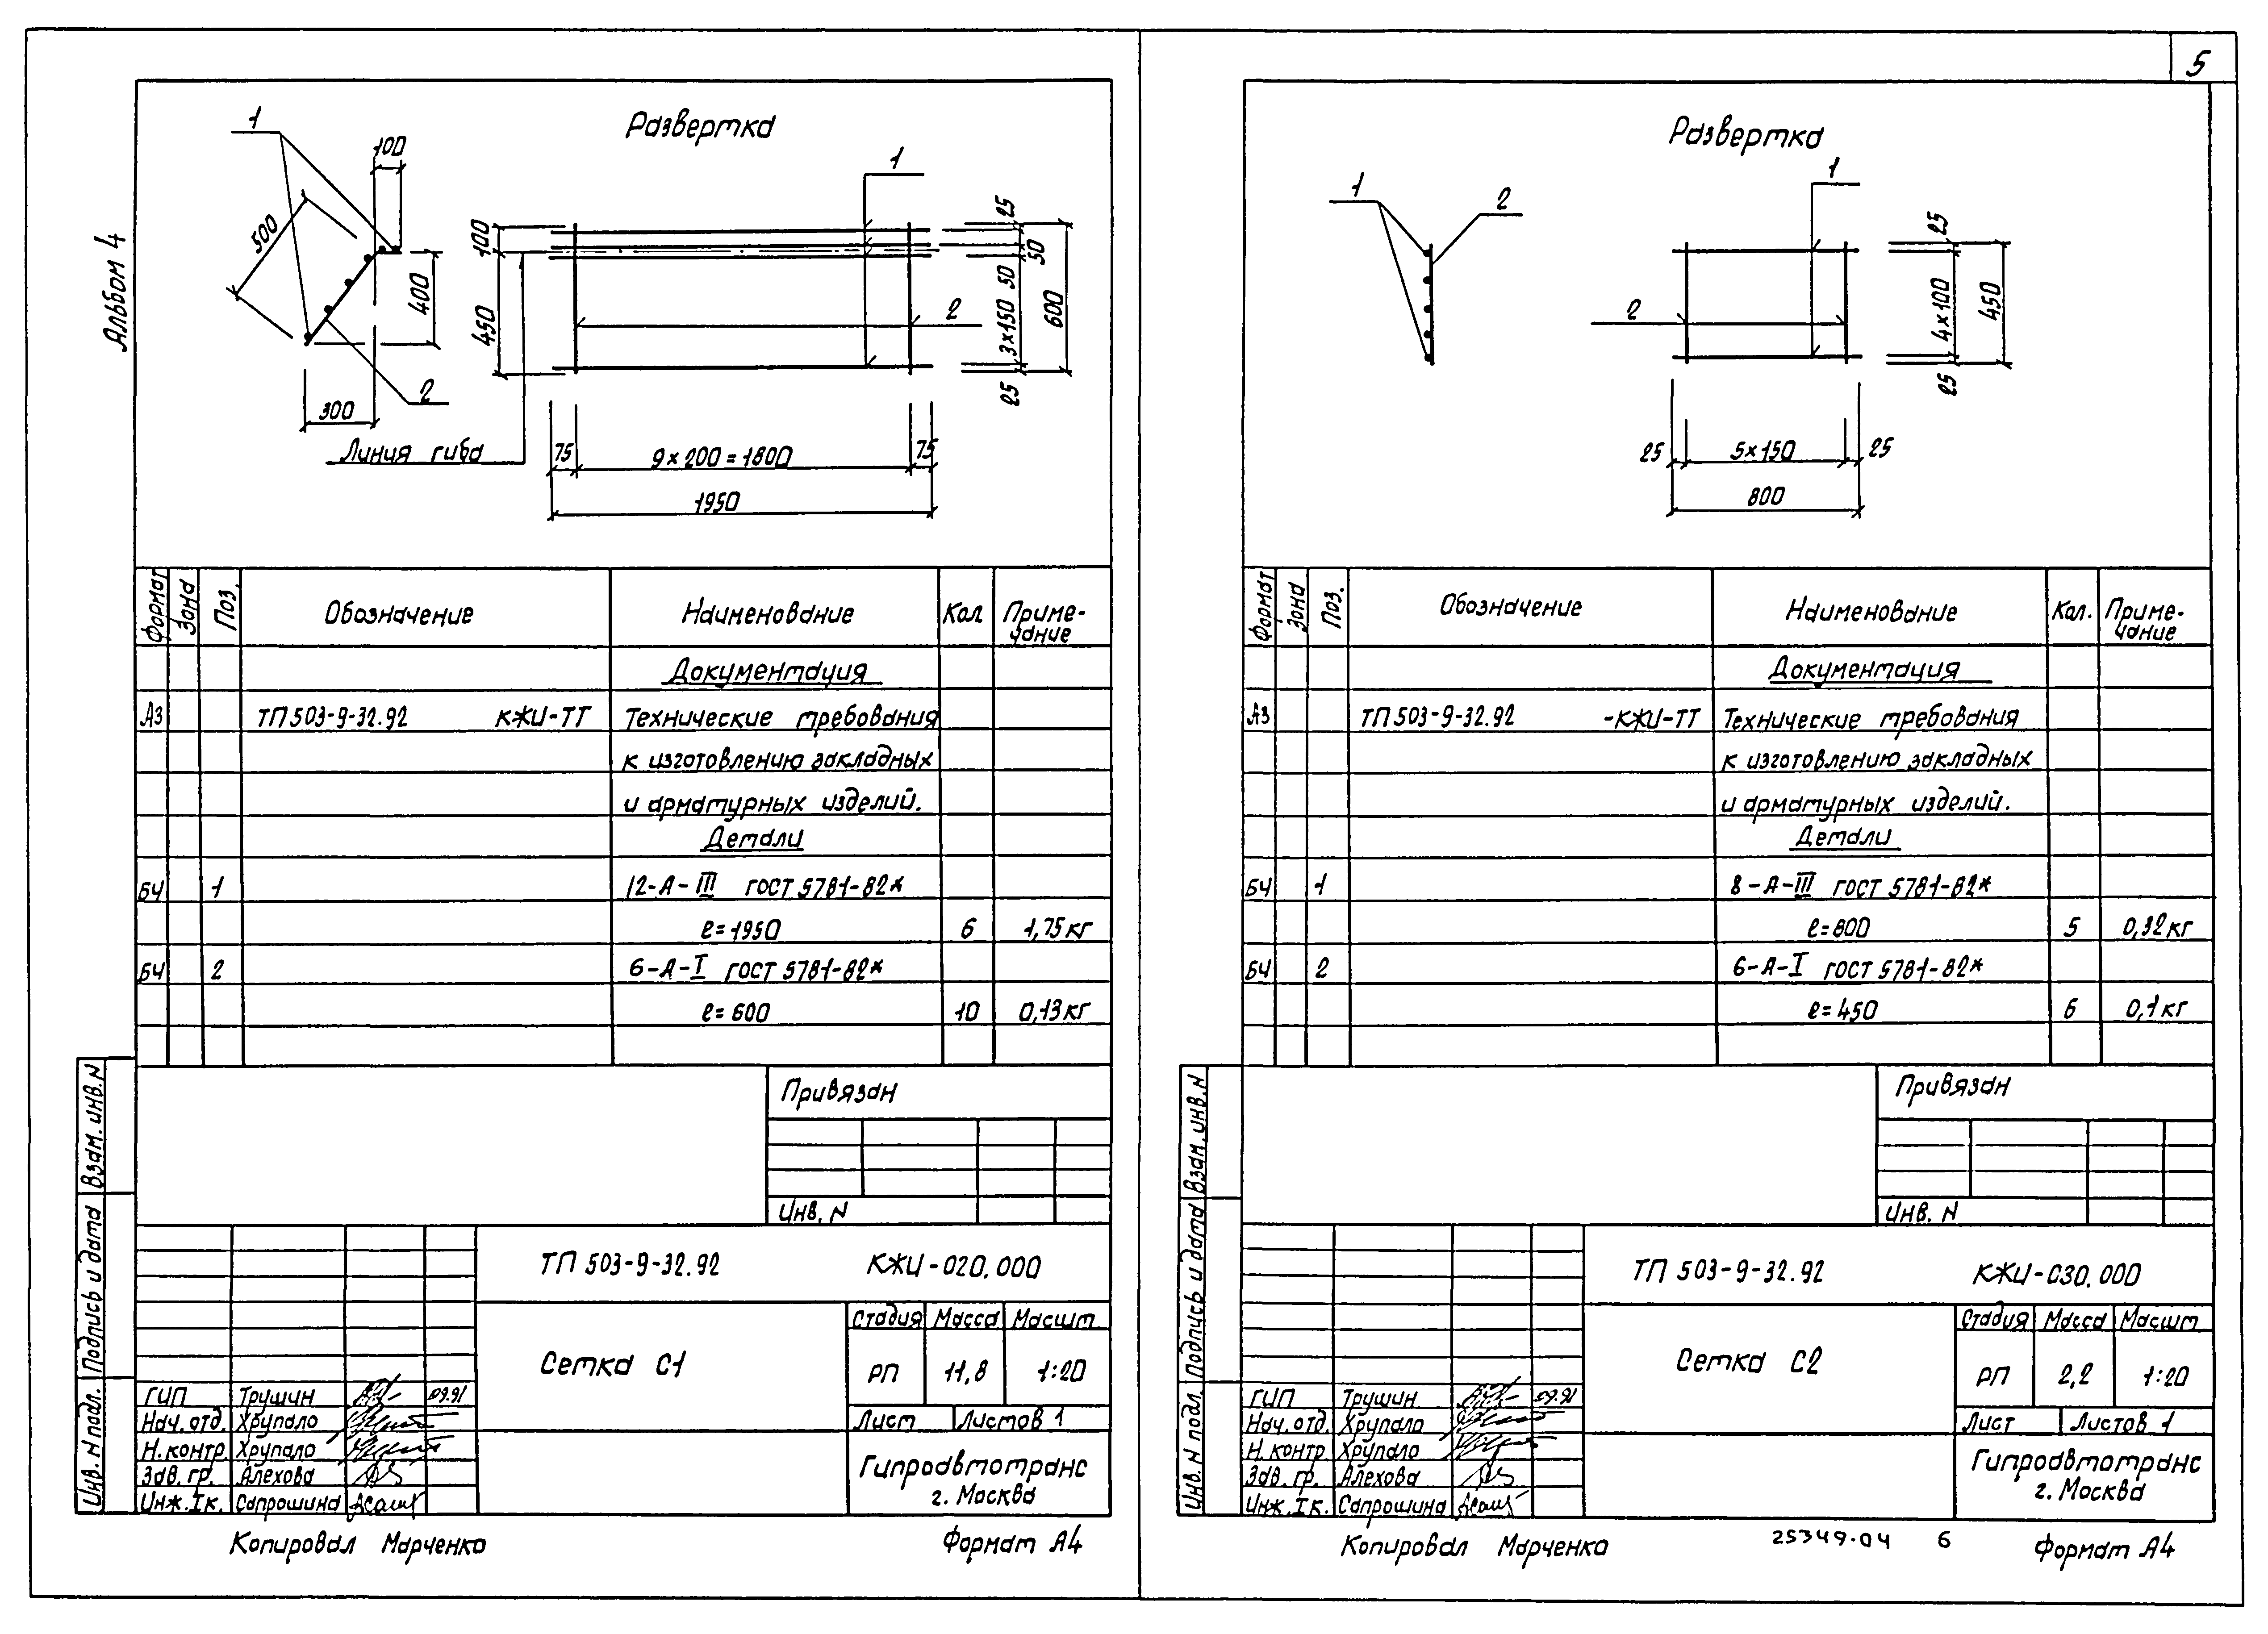 5
Альбом 4
Развертка
1
100
500
400
300
2
Линия гиба
1
100
450
25
50
50
3×150
25
600
2
75
9×200=1800
75
1950
Формат Зона Поз. Обозначение Наименование Кол Приме-
чание
Документация
А3 ТП 503-9-32.92 КЖИ-ТТ Технические требования
к изготовлению закладных
и арматурных изделий.
Детали
БЧ 1 12-А-III ГОСТ 5781-82*
ℓ=1950 6 1,75кг
БЧ 2 6-А-I ГОСТ 5781-82*
ℓ=600 10 0,13кг
Привязан
Инв. N
Взам. инв. N
Подпись и дата
Инв. N подл.
ТП 503-9-32.92 КЖИ-020.000
Сетка С1
Стадия Масса Масшт.
РП 11,8 1:20
Лист Листов 1
Гипроавтотранс
г. Москва
ГИП Трушин 09.91
Нач. отд. Хрупало
Н. контр. Хрупало
Зав. гр. Алехова
Инж. I к. Сапрошина
Копировал Марченко Формат А4
Развертка
1
2
1
2
25
4×100
25
450
25
5×150
25
800
Формат Зона Поз. Обозначение Наименование Кол. Приме-
чание
Документация
А3 ТП 503-9-32.92 -КЖИ-ТТ Технические требования
к изготовлению закладных
и арматурных изделий.
Детали
БЧ 1 8-А-III ГОСТ 5781-82*
ℓ=800 5 0,32кг
БЧ 2 6-А-I ГОСТ 5781-82*
ℓ=450 6 0,1кг
Привязан
Инв. N
Взам. инв. N
Подпись и дата
Инв. N подл.
ТП 503-9-32.92 КЖИ-030.000
Сетка С2
Стадия Масса Масшт
РП 2,2 1:20
Лист Листов 1
Гипроавтотранс
г. Москва
ГИП Трушин 09.91
Нач. отд. Хрупало
Н. контр. Хрупало
Зав. гр. Алехова
Инж. I к. Сапрошина
Копировал Марченко 25349-04 6 Формат А4